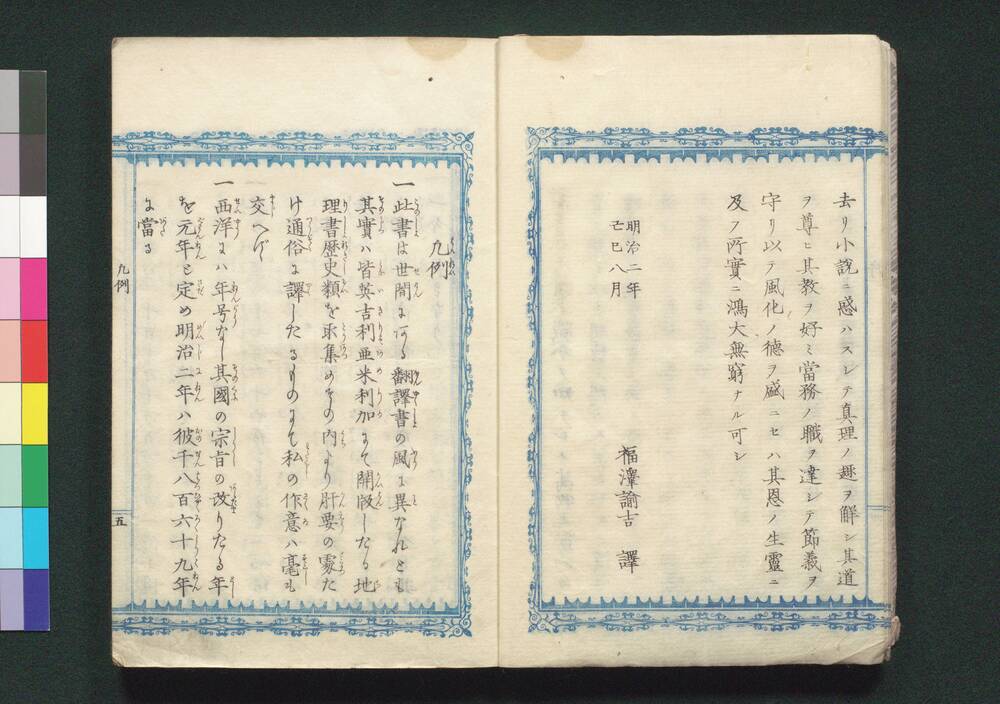 去リ小説ニ惑ハスシテ真理ノ趣ヲ解シ其道
ヲ尊ヒ其教ヲ好ミ當務ノ職ヲ達シテ節義ヲ
守リ以テ風化ノ徳ヲ盛ニセハ其恩ノ生靈ニ
及フ所實ニ鴻大無窮ナル可シ
明治二年
己巳八月
福澤諭吉 譯
凡例
一此書は世間にある翻譯書の風に異なれとも
其實ハ皆英吉利亜米利加にて開版したる地
理書歴史類を取集めその内より肝要の処た
け通俗に譯したるものにて私の作意ハ毫も
交へず
一西洋にハ年号なし其國の宗旨の改りたる年
を元年と定め明治二年ハ彼千八百六十九年
に當る
凡例
五